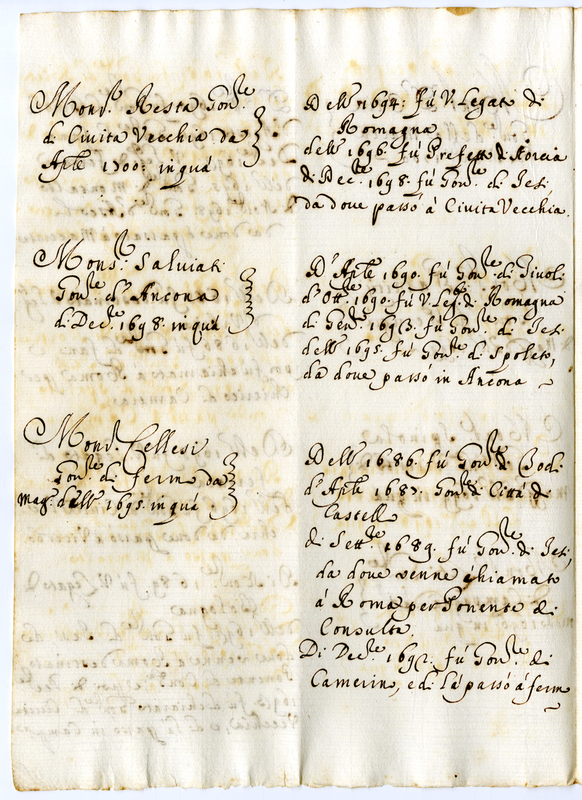 Mons.r Resta Gon.re
di Civita Vecchia da
Aple 1700: in quà
Dell' 1694: fù V. Legato di
Romagna
dell' 1696. fù Prefett. di Norcia
di Dec.re 1698. fù Gon.re di Jesi
da dove passò à Civita Vecchia.
Mons.r Salviati
Gon.re d'Ancona
di Dec.re 1698. in quà
D'Aple 1690. fù Gon.re di Tivoli
d'Ott.re 1690. fù V. Leg. di Romagna
di Gen.ro 1693. fù Gon.re di Jesi
dell' 1695. fù Gon.re di Spoleto,
da dove passò in Ancona
Mons.r Cellesi
Gon.re di Fermo da
Mag. dell' 1695. in quà
Dell' 1686. fù Gon.re di Todi
d'Aple 1687. Gon.re di Città di
Castello
di Sett.re 1689. fù Gon.re di Jesi,
da dove venne chiamato
à Roma per Ponente di
Consulta.
Di Dec.re 1692. fù Gon.re di
Camerino, e di là passò à fermo